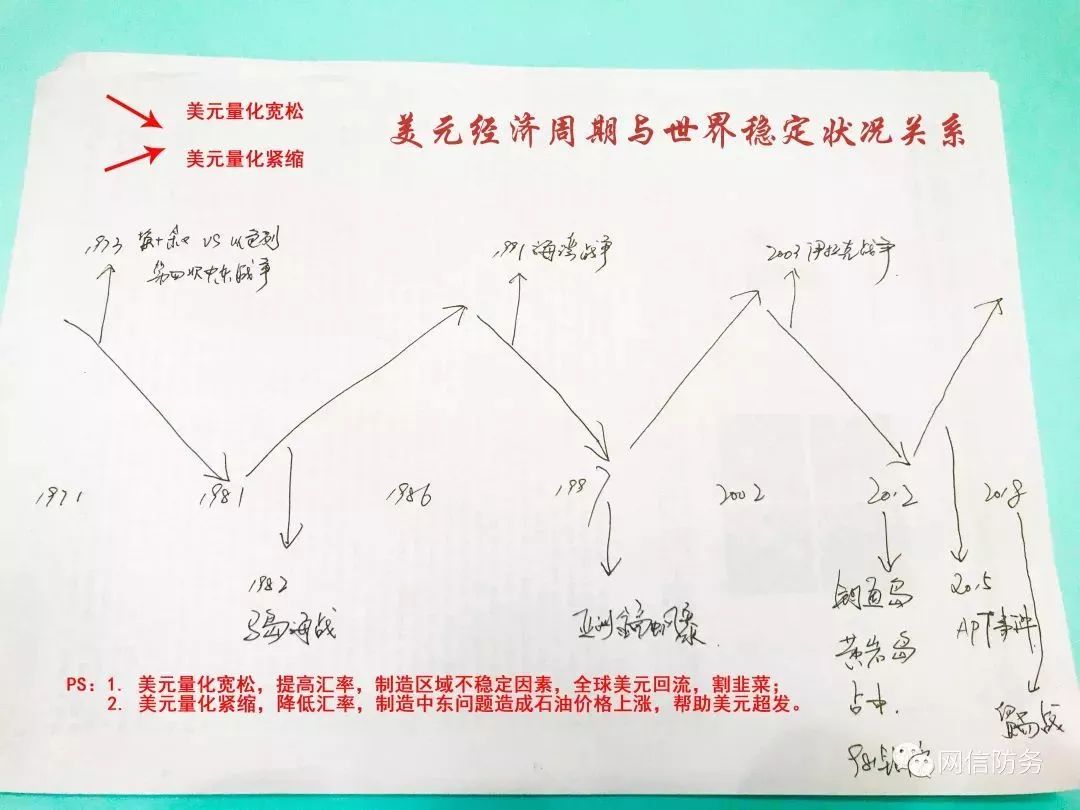 美元量化宽松
美元量化紧缩
美元经济周期与世界稳定状况关系
1973 埃+叙 VS 以色列
第四次中东战争
1991海湾战争
2003伊拉克战争
1971
1981
1986
1997
2002
2012
2018
1982
马岛海战
亚洲金融风暴
钓鱼岛
黄岩岛
占中
2015
APT事件
贸易战
PS:1. 美元量化宽松,提高汇率,制造区域不稳定因素,全球美元回流,割韭菜;
2. 美元量化紧缩,降低汇率,制造中东问题造成石油价格上涨,帮助美元超发。
网信防务